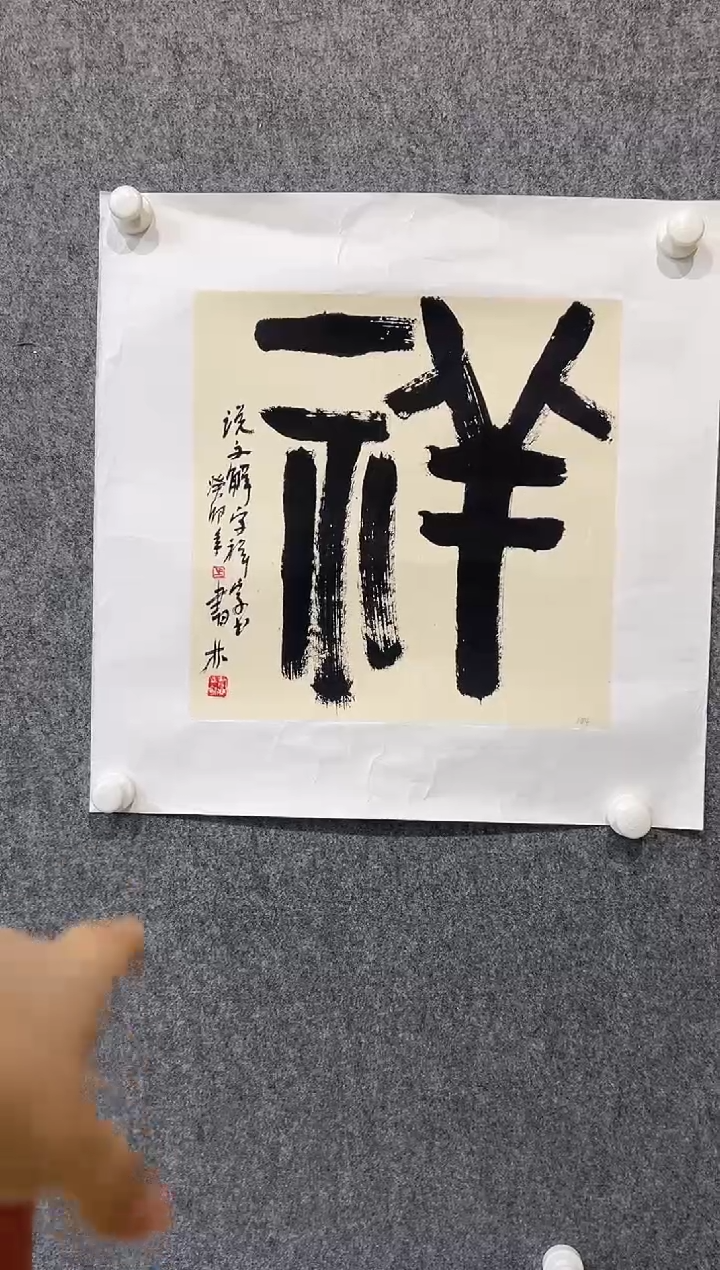 祥
说文解字祥字书
癸卯年 書林